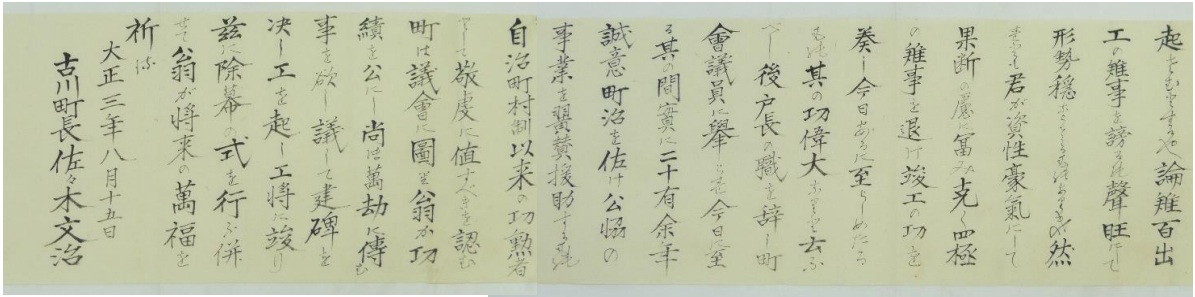 起さむとするや論難百出
工の難事を謗るの聲旺にして
形勢穏ならざるものありしも然
れども君が資性豪氣にして
果断の慮に冨み克く四極
の難事を退け竣工の功を
奏し今日あるに至らしめたる
もの其の功偉大なりと云ふ
べし後戸長の職を辞し町
會議員に擧げらる今日に至
る其の間實に二十有余年
誠意町治を佐け公恊の
事業を翼賛援助する
自治町村制以来の功勲者
として敬虔に値すべきを認む
町は議會に圖り翁が功
績を公にし尚ほ萬劫に傳む
事を欲し議して建碑を
决し工を起し工将に竣り
茲に除幕の式を行ふ併
せて翁が将来の萬福を
祈る
大正三年八月十五日
古川町長佐々木文治